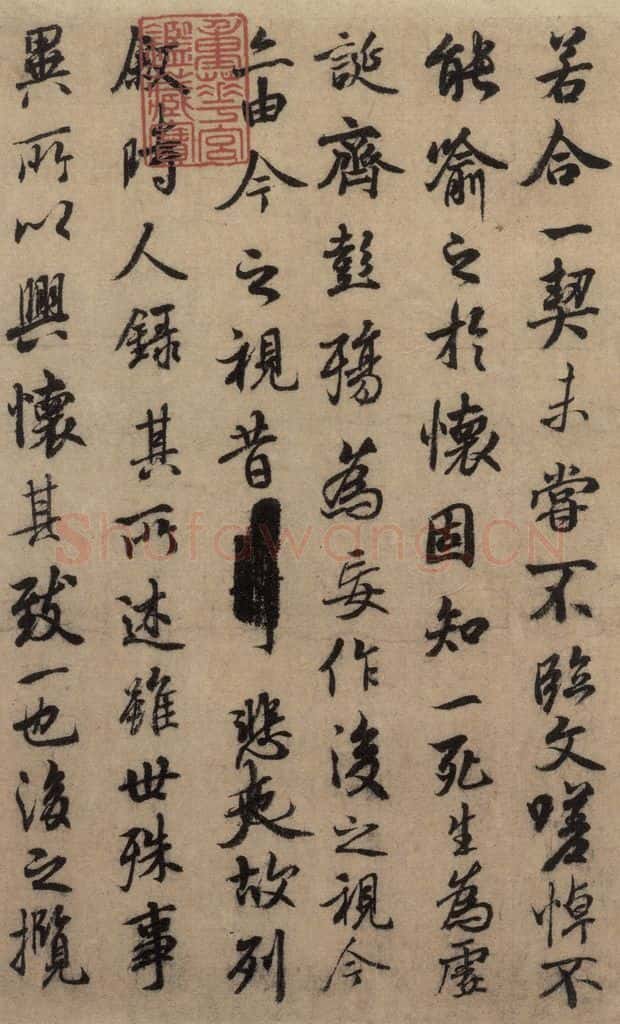 若合一契未嘗不臨文嗟悼不
能喻之於懷固知一死生為虛
誕齊彭殤為妄作後之視今
亦由今之視昔悲夫故列
敘時人錄其所述雖世殊事
異所以興懷其致一也後之攬
重華宮鑑藏寶
Shufawang.CN